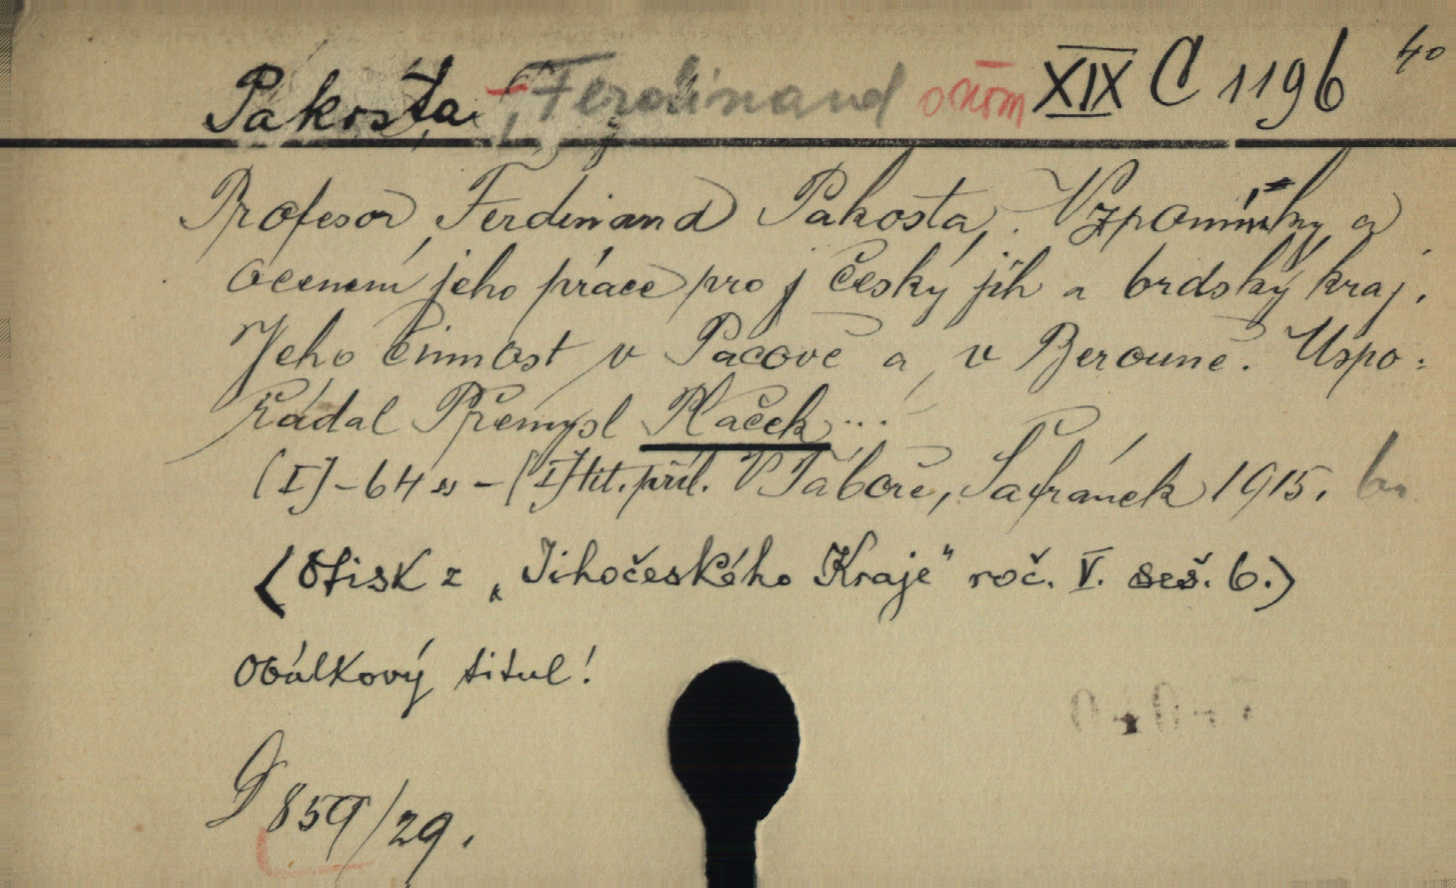 Pakosta - Ferdinand o něm XIX C 1196 40
Profesor Ferdinand Pakosta. Vzpomínky a
ocenění jeho práce pro j český jih a brdský kraj.
Jeho činnost v Pacově a v Berouně. Uspo-
řádal Přemysl Plaček...
[I]-64 ss - [I] tit. příl. V Táboře, Šafránek 1915.
(Otisk z „Jihočeského Kraje" roč. V. seš. 6.)
Obálkový titul!
D 859/29.